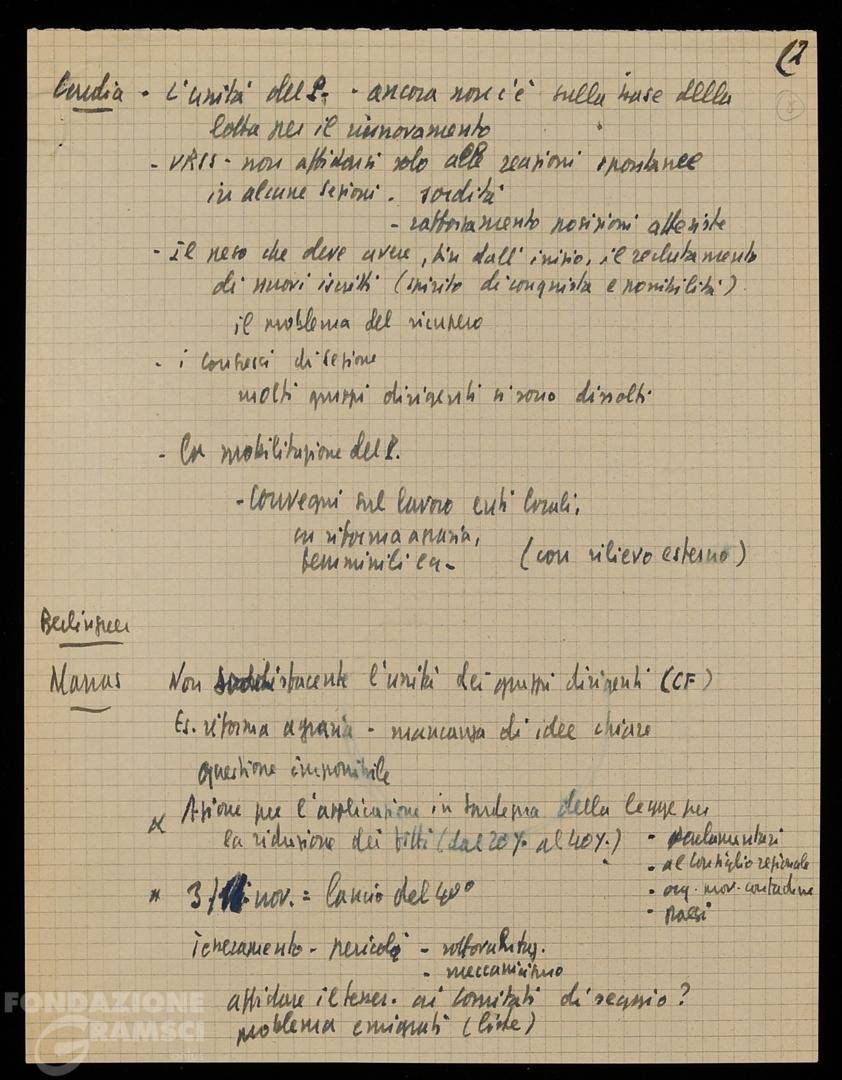 (2
Ceredia - L'unità del P. - ancora non c'è sulla base della
lotta per il rinnovamento
- URSS - non affidarsi solo alle reazioni spontanee
in alcune sezioni. sordità
- rafforzamento posizioni attesiste
- Il peso che deve avere, fin dall'inizio, il reclutamento
di nuovi iscritti (spirito di conquista e possibilità)
il problema del ricupero
- i congressi di sezione
molti gruppi dirigenti si sono dissolti
- La mobilitazione del P.
- Convegni sul lavoro enti locali,
su riforma agraria,
femminili ecc. (con rilievo esterno)
Berlinguer
Marras Non soddisfacente l'unità dei gruppi dirigenti (CF)
Es. riforma agraria - mancanza di idee chiare
questione imponibile
Azione per l'applicazione in Sardegna della legge per
la riduzione dei fitti (dal 20% al 40%) - parlamentari
- al Consiglio regionale
- org. mov. contadine
- paesi
3/ nov. = lancio del 40°
Tesseramento - pericoli - sottovalutaz.
- meccanicismo
affidare il tesser. ai Comitati di seggio?
problema emigrati (liste)
FONDAZIONE
GRAMSCI